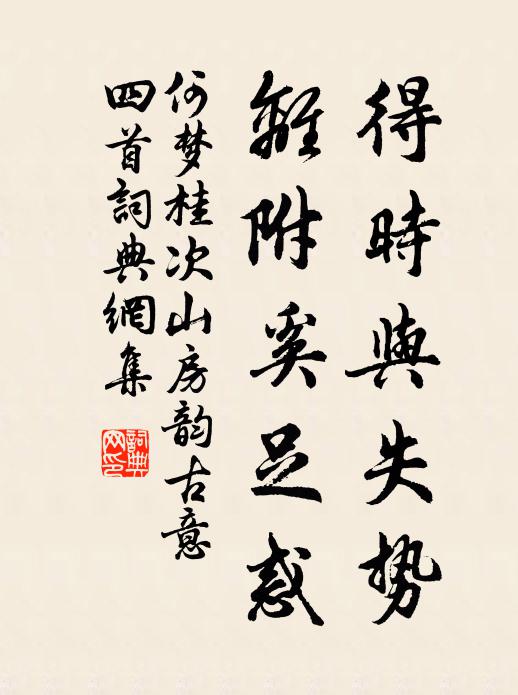 得時與失势
離附奚足惑
何梦桂次山房韵古意
四首詞典網集
詞典网印